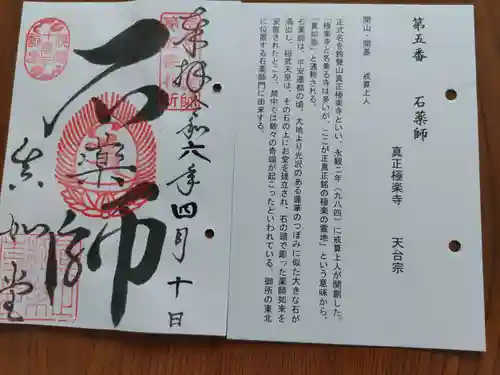 第五番　石薬師　真正極楽寺　天台宗
開山・開基　戒算上人
正式名を鈴聲山真正極楽寺といい、永観二年（九八四）に戒算上人が開創した。
極楽寺と名乗る寺は多いが、ここが正真正銘の極楽の霊地」という意味から、
「真如堂」と通称される。
石薬師は、平安遷都の頃、大地より光沢のある蓮華のつぼみに似た大きな石が
湧出し、桓武天皇は、その石の上にお堂を建立され、石の頭で彫った薬師如来を
安置されたところ、禁中では数々の奇瑞が起こったといわれている。御所の東北
に位置する石薬師門に由来する。
奉拝
令和六年四月十日
石薬師
真如堂